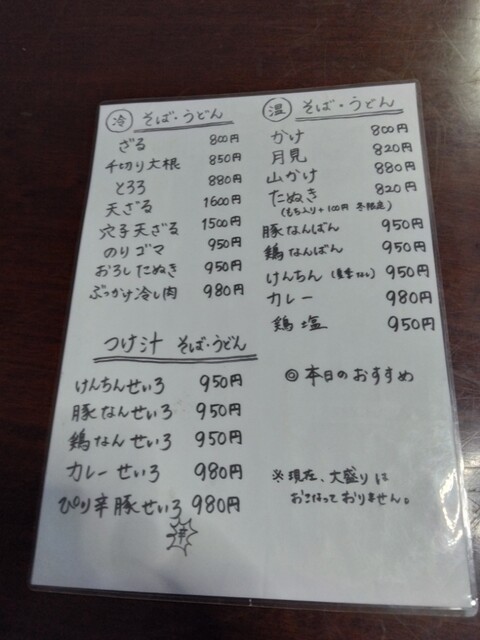 冷 そば・うどん
ざる 800円
千切り大根 850円
とろろ 880円
天ざる 1600円
穴子天ざる 1500円
のりゴマ 950円
おろしたぬき 950円
ぶっかけ冷し肉 980円
つけ汁 そば・うどん
けんちんせいろ 950円
豚なんせいろ 950円
鶏なんせいろ 950円
カレーせいろ 980円
ぴり辛豚せいろ 980円
温 そば・うどん
かけ 800円
月見 820円
山かけ 880円
たぬき 820円
(もち入り+100円 冬限定)
豚なんばん 950円
鶏なんばん 950円
けんちん 950円
カレー 980円
鶏塩 950円
◎本日のおすすめ
※現在、大盛りは
おこなっておりません。